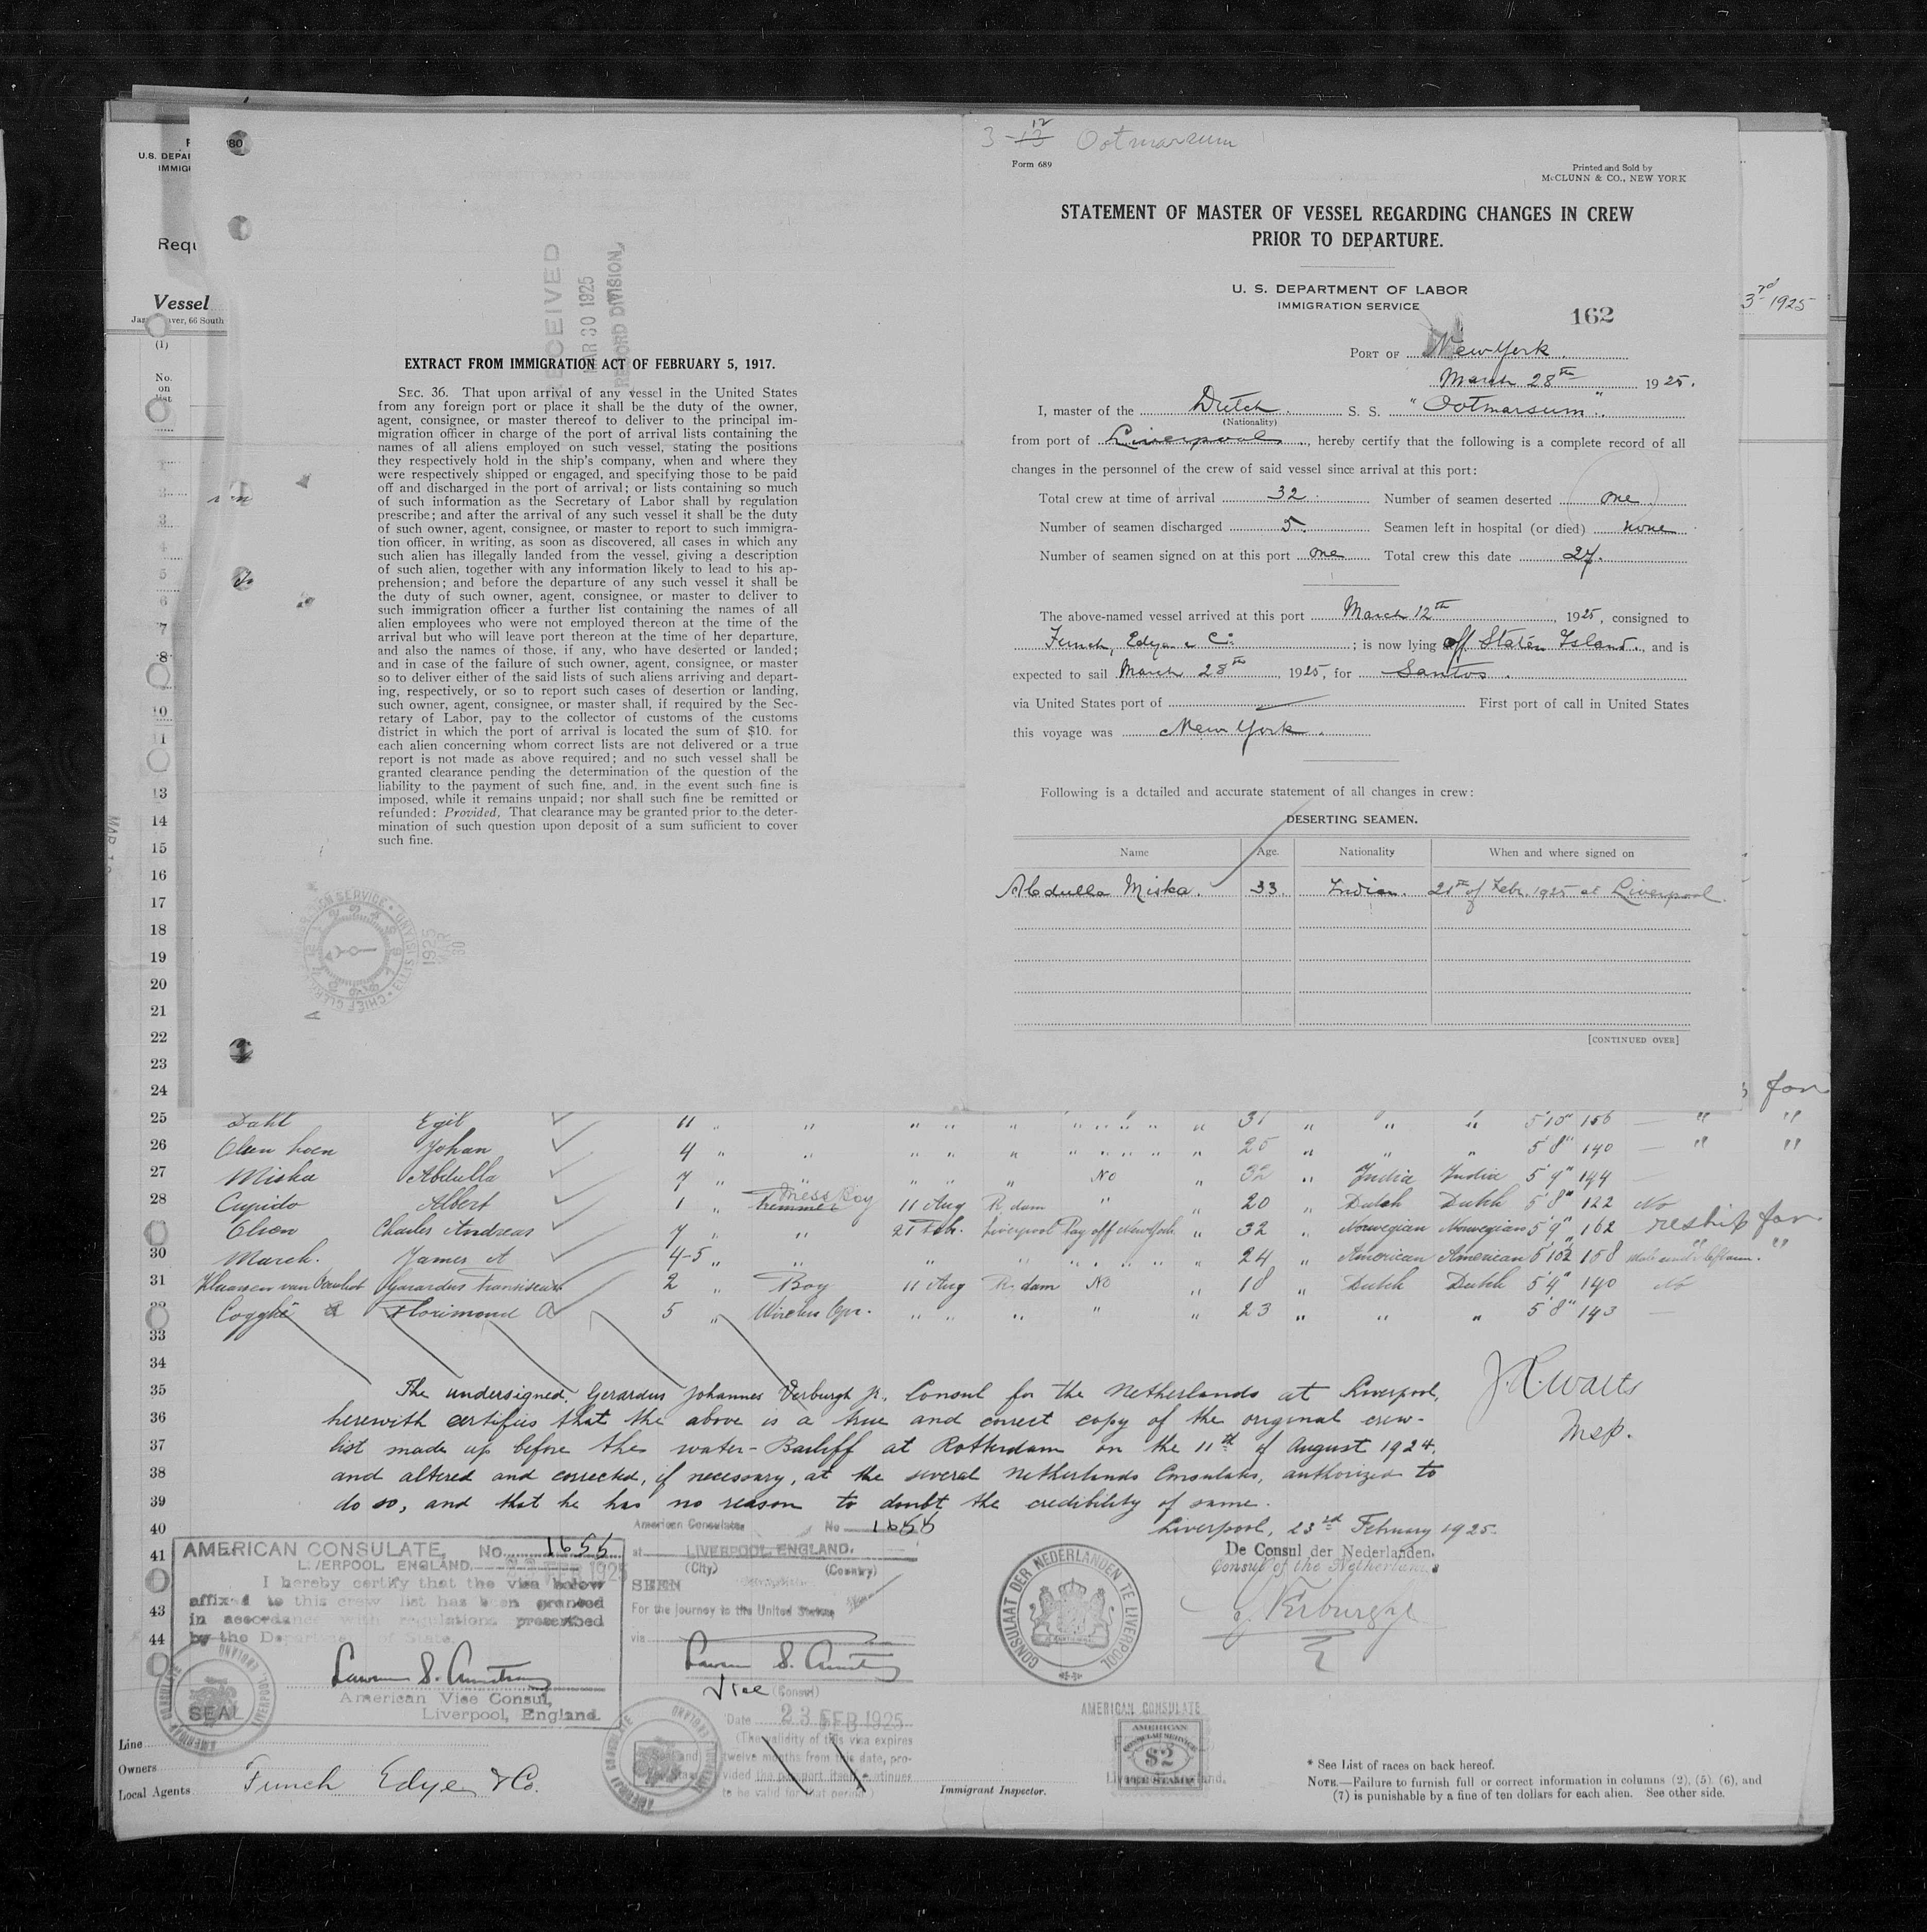 U.S. DEPAR
IMMIGR
80
Requ
Vessel
ver, 66 South
(1)
No.
on
list
RECEIVED
MAR 30 1925
RECORD DIVISION
EXTRACT FROM IMMIGRATION ACT OF FEBRUARY 5, 1917.
SEC. 36. That upon arrival of any vessel in the United States
from any foreign port or place it shall be the duty of the owner,
agent, consignee, or master thereof to deliver to the principal im-
migration officer in charge of the port of arrival lists containing the
names of all aliens employed on such vessel, stating the positions
they respectively hold in the ship's company, when and where they
were respectively shipped or engaged, and specifying those to be paid
off and discharged in the port of arrival; or lists containing so much
of such information as the Secretary of Labor shall by regulation
prescribe; and after the arrival of any such vessel it shall be the duty
of such owner, agent, consignee, or master to report to such immigra-
tion officer, in writing, as soon as discovered, all cases in which any
such alien has illegally landed from the vessel, giving a description
of such alien, together with any information likely to lead to his ap-
prehension; and before the departure of any such vessel it shall be
the duty of such owner, agent, consignee, or master to deliver to
such immigration officer a further list containing the names of all
alien employees who were not employed thereon at the time of the
arrival but who will leave port thereon at the time of her departure,
and also the names of those, if any, who have deserted or landed;
and in case of the failure of such owner, agent, consignee, or master
so to deliver either of the said lists of such aliens arriving and depart-
ing, respectively, or so to report such cases of desertion or landing,
such owner, agent, consignee, or master shall, if required by the Sec-
retary of Labor, pay to the collector of customs of the customs
district in which the port of arrival is located the sum of $10. for
each alien concerning whom correct lists are not delivered or a true
report is not made as above required; and no such vessel shall be
granted clearance pending the determination of the question of the
liability to the payment of such fine, and, in the event such fine is
imposed, while it remains unpaid; nor shall such fine be remitted or
refunded: Provided, That clearance may be granted prior to the deter-
mination of such question upon deposit of a sum sufficient to cover
such fine.
3-12 Ootmarsum
Form 689
Printed and Sold by
McCLUNN & CO., NEW YORK
STATEMENT OF MASTER OF VESSEL REGARDING CHANGES IN CREW
PRIOR TO DEPARTURE.
U. S. DEPARTMENT OF LABOR
IMMIGRATION SERVICE
162
3rd 1925
PORT OF New York.
March 28th 1925.
I, master of the Dutch. S. S. "Ootmarsum".
(Nationality)
from port of Liverpool, hereby certify that the following is a complete record of all
changes in the personnel of the crew of said vessel since arrival at this port:
Total crew at time of arrival 32. Number of seamen deserted one
Number of seamen discharged 5. Seamen left in hospital (or died) none
Number of seamen signed on at this port one Total crew this date 27.
The above-named vessel arrived at this port March 12th, 1925, consigned to
Funch, Edye & Co; is now lying off Staten Island., and is
expected to sail March 28th, 1925, for Santos.
via United States port of First port of call in United States
this voyage was New York.
Following is a detailed and accurate statement of all changes in crew:
DESERTING SEAMEN.
Name Age. Nationality When and where signed on
Abdulla Miska. 33. Indian. 21st of Febr. 1925 at Liverpool.
[CONTINUED OVER]
for
25 Dahl Egil 11 " " " " " " " " " " " 31 " " " 5'10" 156 — " "
26 Johan 4 " " " " " " " " " " " 25 " " " 5'8" 140 — " "
27 Miska Abdulla 7 " " " " " No " 32 " India India 5'9" 144 —
28 Cupido Albert 1 " Mess Boy 11 Aug R.dam " " 20 " Dutch Dutch 5'8" 122 No
Olsen Charles Andreas 7 " " 21 Feb. Liverpool Pay off New York " 32 " Norwegian Norwegian 5'9" 162 reship for
30 March. James A 4-5 " " " " " " " " " 24 " American American 5'10½ 158 "
31 Gerardus Franciscus 2 " Boy 11 Aug R.dam No " 18 " Dutch Dutch 5'9" 140 No
32 Cogghe Florimond A 5 " Wireless Opr. " " " " " 23 " " " 5'8" 143 —
33
34
35 The undersigned, Gerardus Johannes Verburgh Jr. Consul for the Netherlands at Liverpool,
36 herewith certifies that the above is a true and correct copy of the original crew-
37 list made up before the water-Bailiff at Rotterdam on the 11th of August 1924.
38 and altered and corrected, if necessary, at the several Netherlands Consulates, authorized to
39 do so, and that he has no reason to doubt the credibility of same.
40 Liverpool, 23rd February 1925.
De Consul der Nederlanden.
Consul of the Netherlands
CONSULAAT DER NEDERLANDEN TE LIVERPOOL
AMERICAN CONSULATE, No. 1655
LIVERPOOL, ENGLAND. 23 FEB 1925
I hereby certify that the visa below
affixed to this crew list has been granted
in accordance with regulations prescribed
by the Department of State.
American Vice Consul,
Liverpool, England.
SEAL
American Consulate No 1655
at LIVERPOOL ENGLAND.
(City) (Country)
SEEN
For the journey to the United States
via
Vice (Consul)
Date 23 FEB 1925
(The validity of this visa expires
twelve months from this date, pro-
vided the passport itself continues
to be valid for that period)
AMERICAN CONSULATE
AMERICAN
CONSULAR SERVICE
$2
FEE STAMP
Line
Owners
Local Agents Funch Edye & Co.
Immigrant Inspector.
* See List of races on back hereof.
NOTE.—Failure to furnish full or correct information in columns (2), (5), (6), and
(7) is punishable by a fine of ten dollars for each alien. See other side.